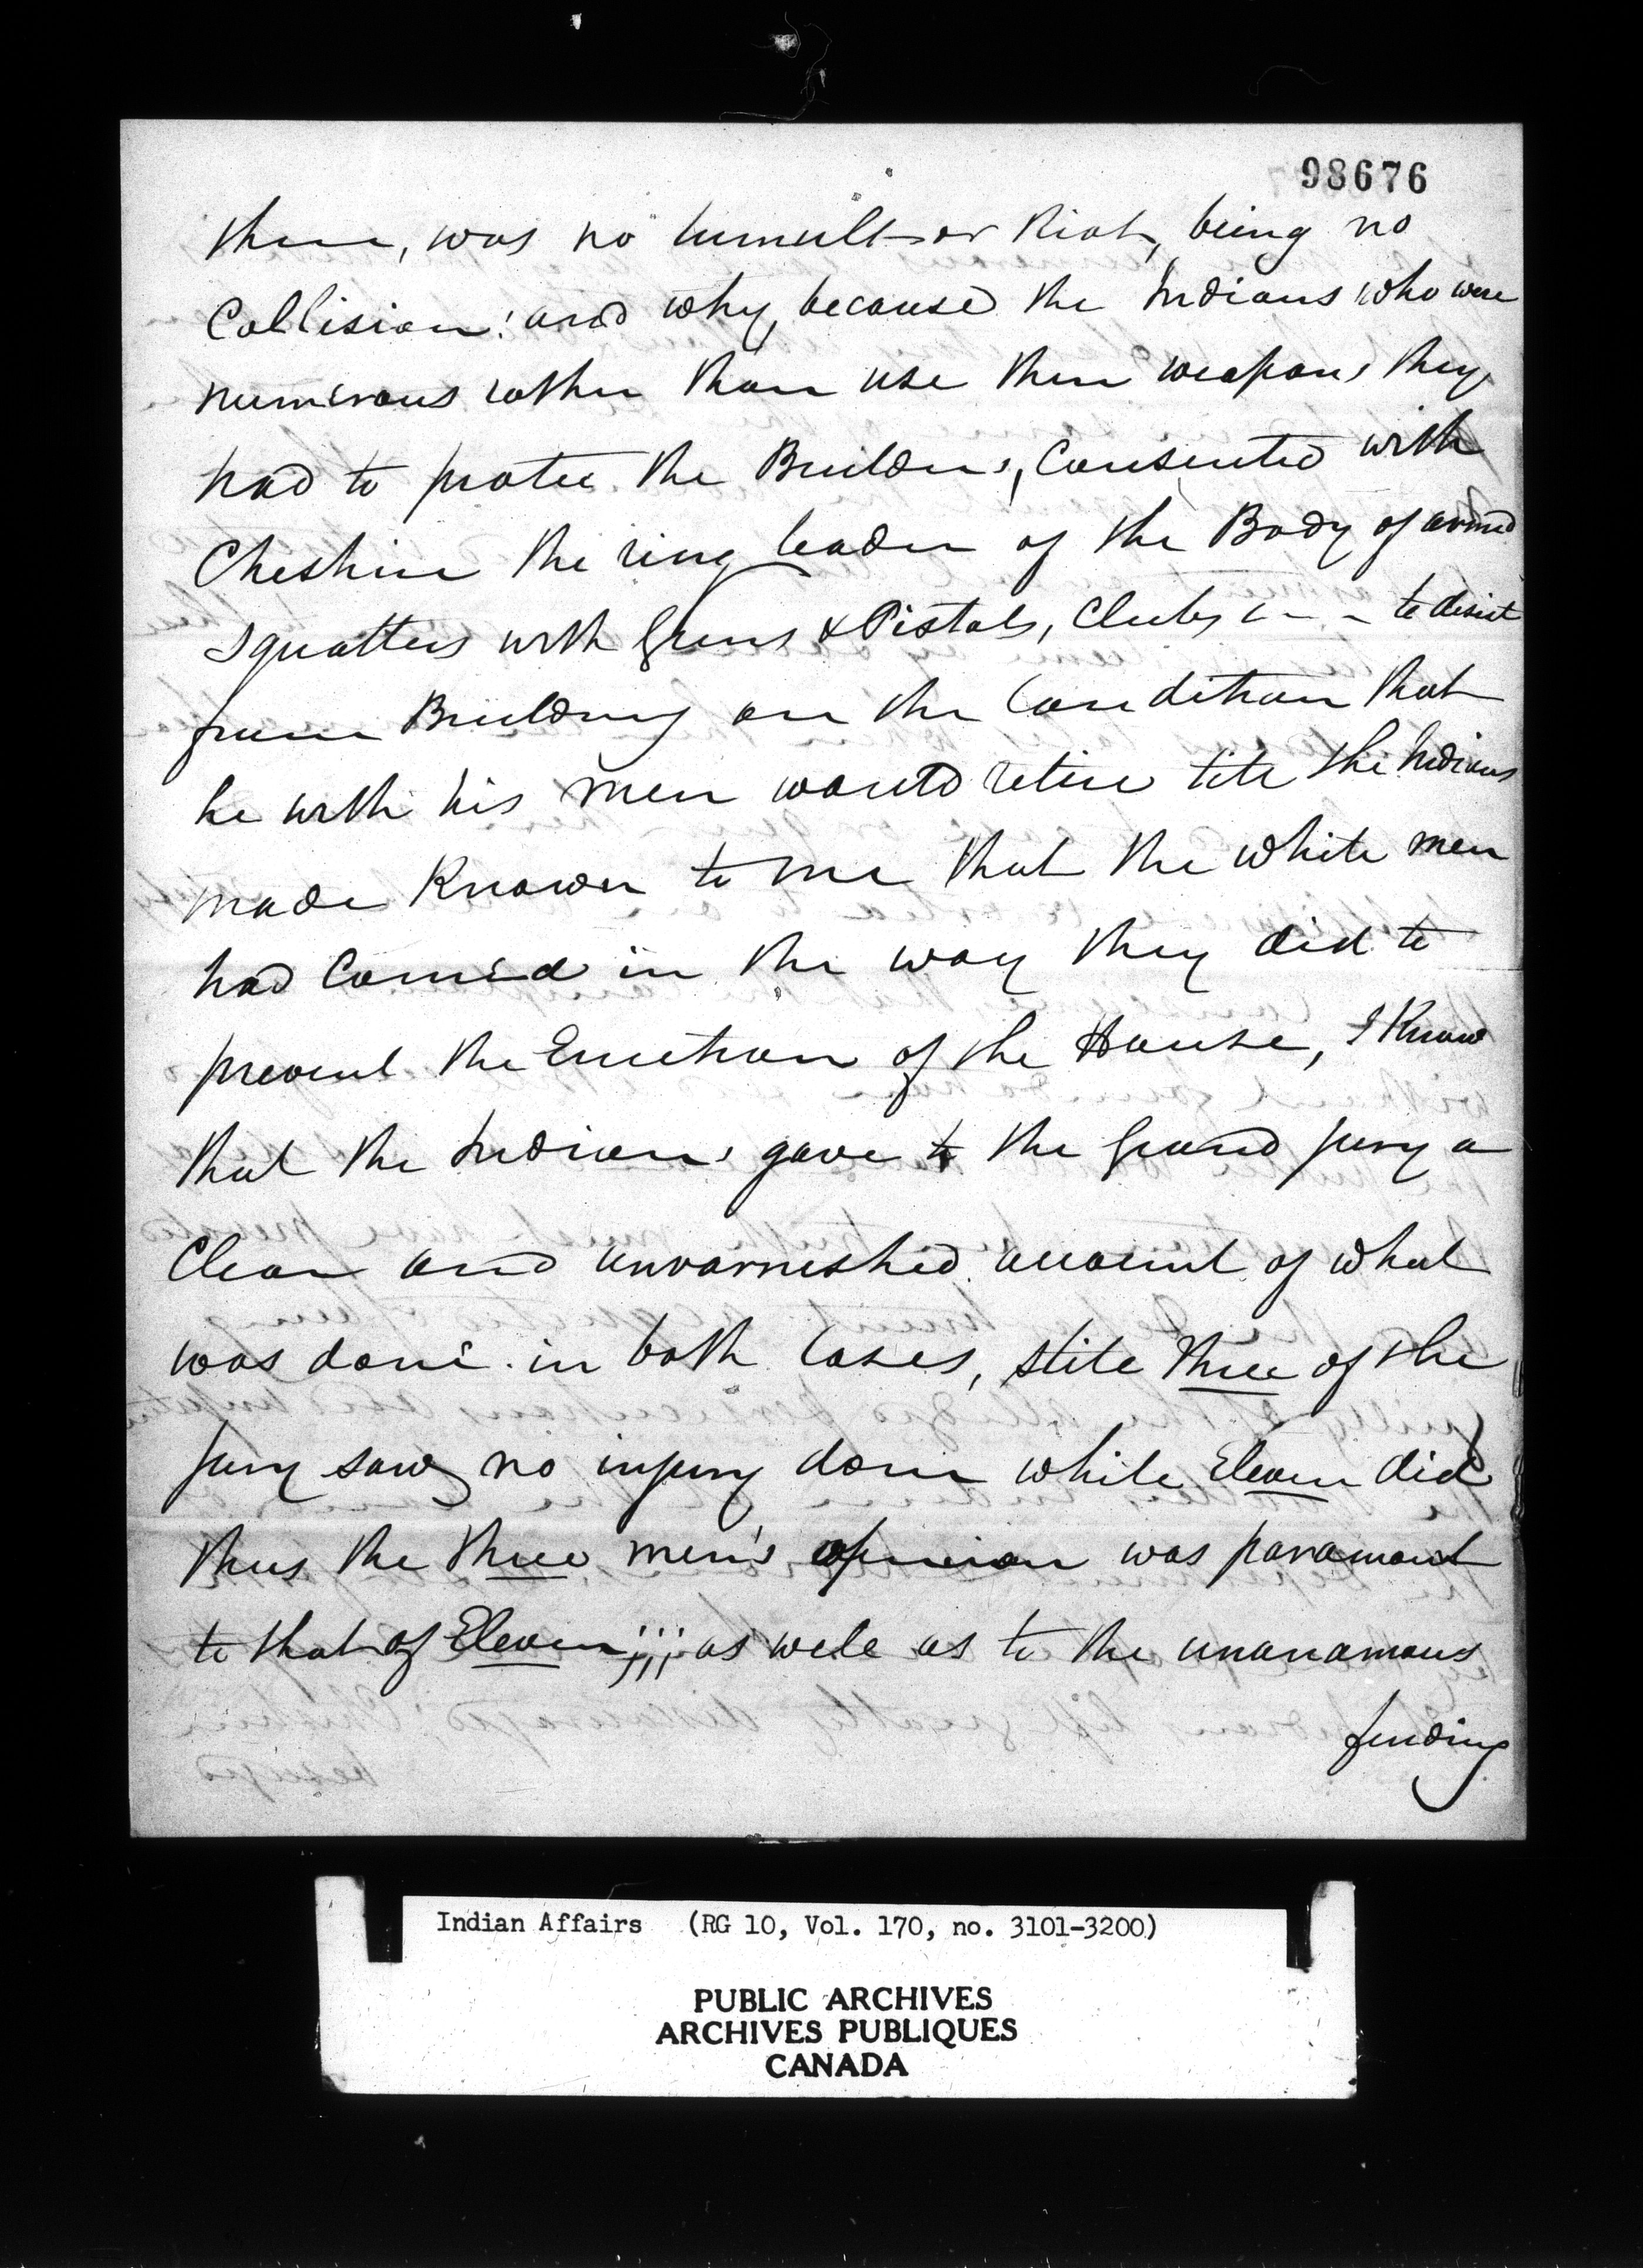 98676
there, was no tumult or Riot, being no
Collision! and why, because the Indians who were
numerous rather than use their weapons they
had to protec the Builders, Consented with
Cheshire the ring leader of the Body of armed
squatters with Guns & Pistols, Clubs to desist
from Building on the Condition that
he with his men would retire till the Indians
made Known to me that the White men
had Comed in the way they did to
prevent the Erection of the House, I Know
that the Indians gave to the Grand jury a
Clear and unvarnished account of what
was done in both Cases, still three of the
jury saw no injury done while Eleven did
thus the three men's opinion was paramount
to that of Eleven;;; as well as to the unanamous
finding
Indian Affairs (RG 10, Vol. 170, no. 3101-3200)
PUBLIC ARCHIVES
ARCHIVES PUBLIQUES
CANADA